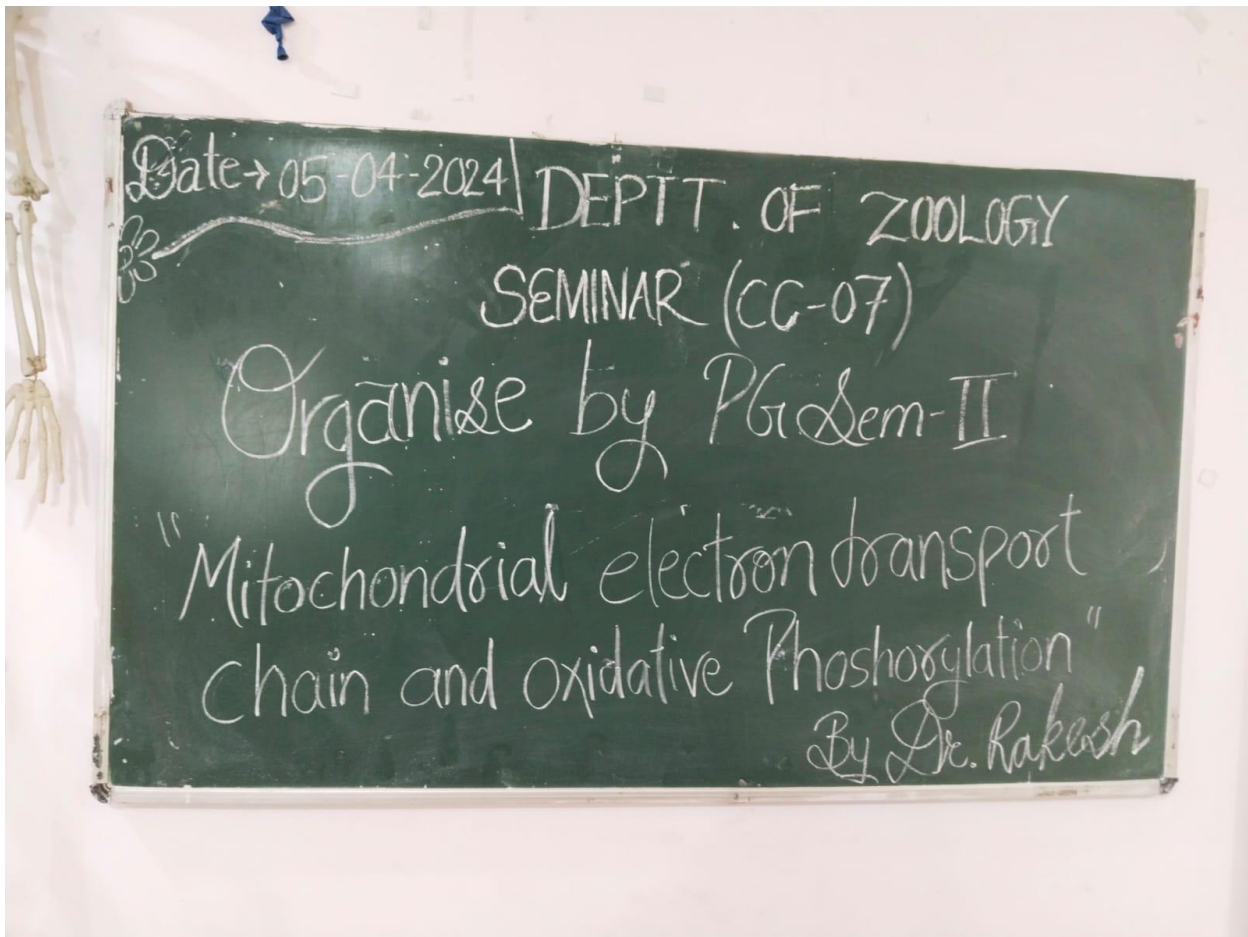 Date → 05-04-2024
DEPTT. OF ZOOLOGY
SEMINAR (CC-07)
Organise by PG Sem-II
"Mitochondrial electron transport
chain and oxidative Phoshorylation"
By Dr. Rakesh